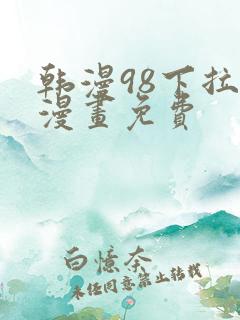 韩漫98下拉
漫畫免費
白憶奈
未任同意禁止转载